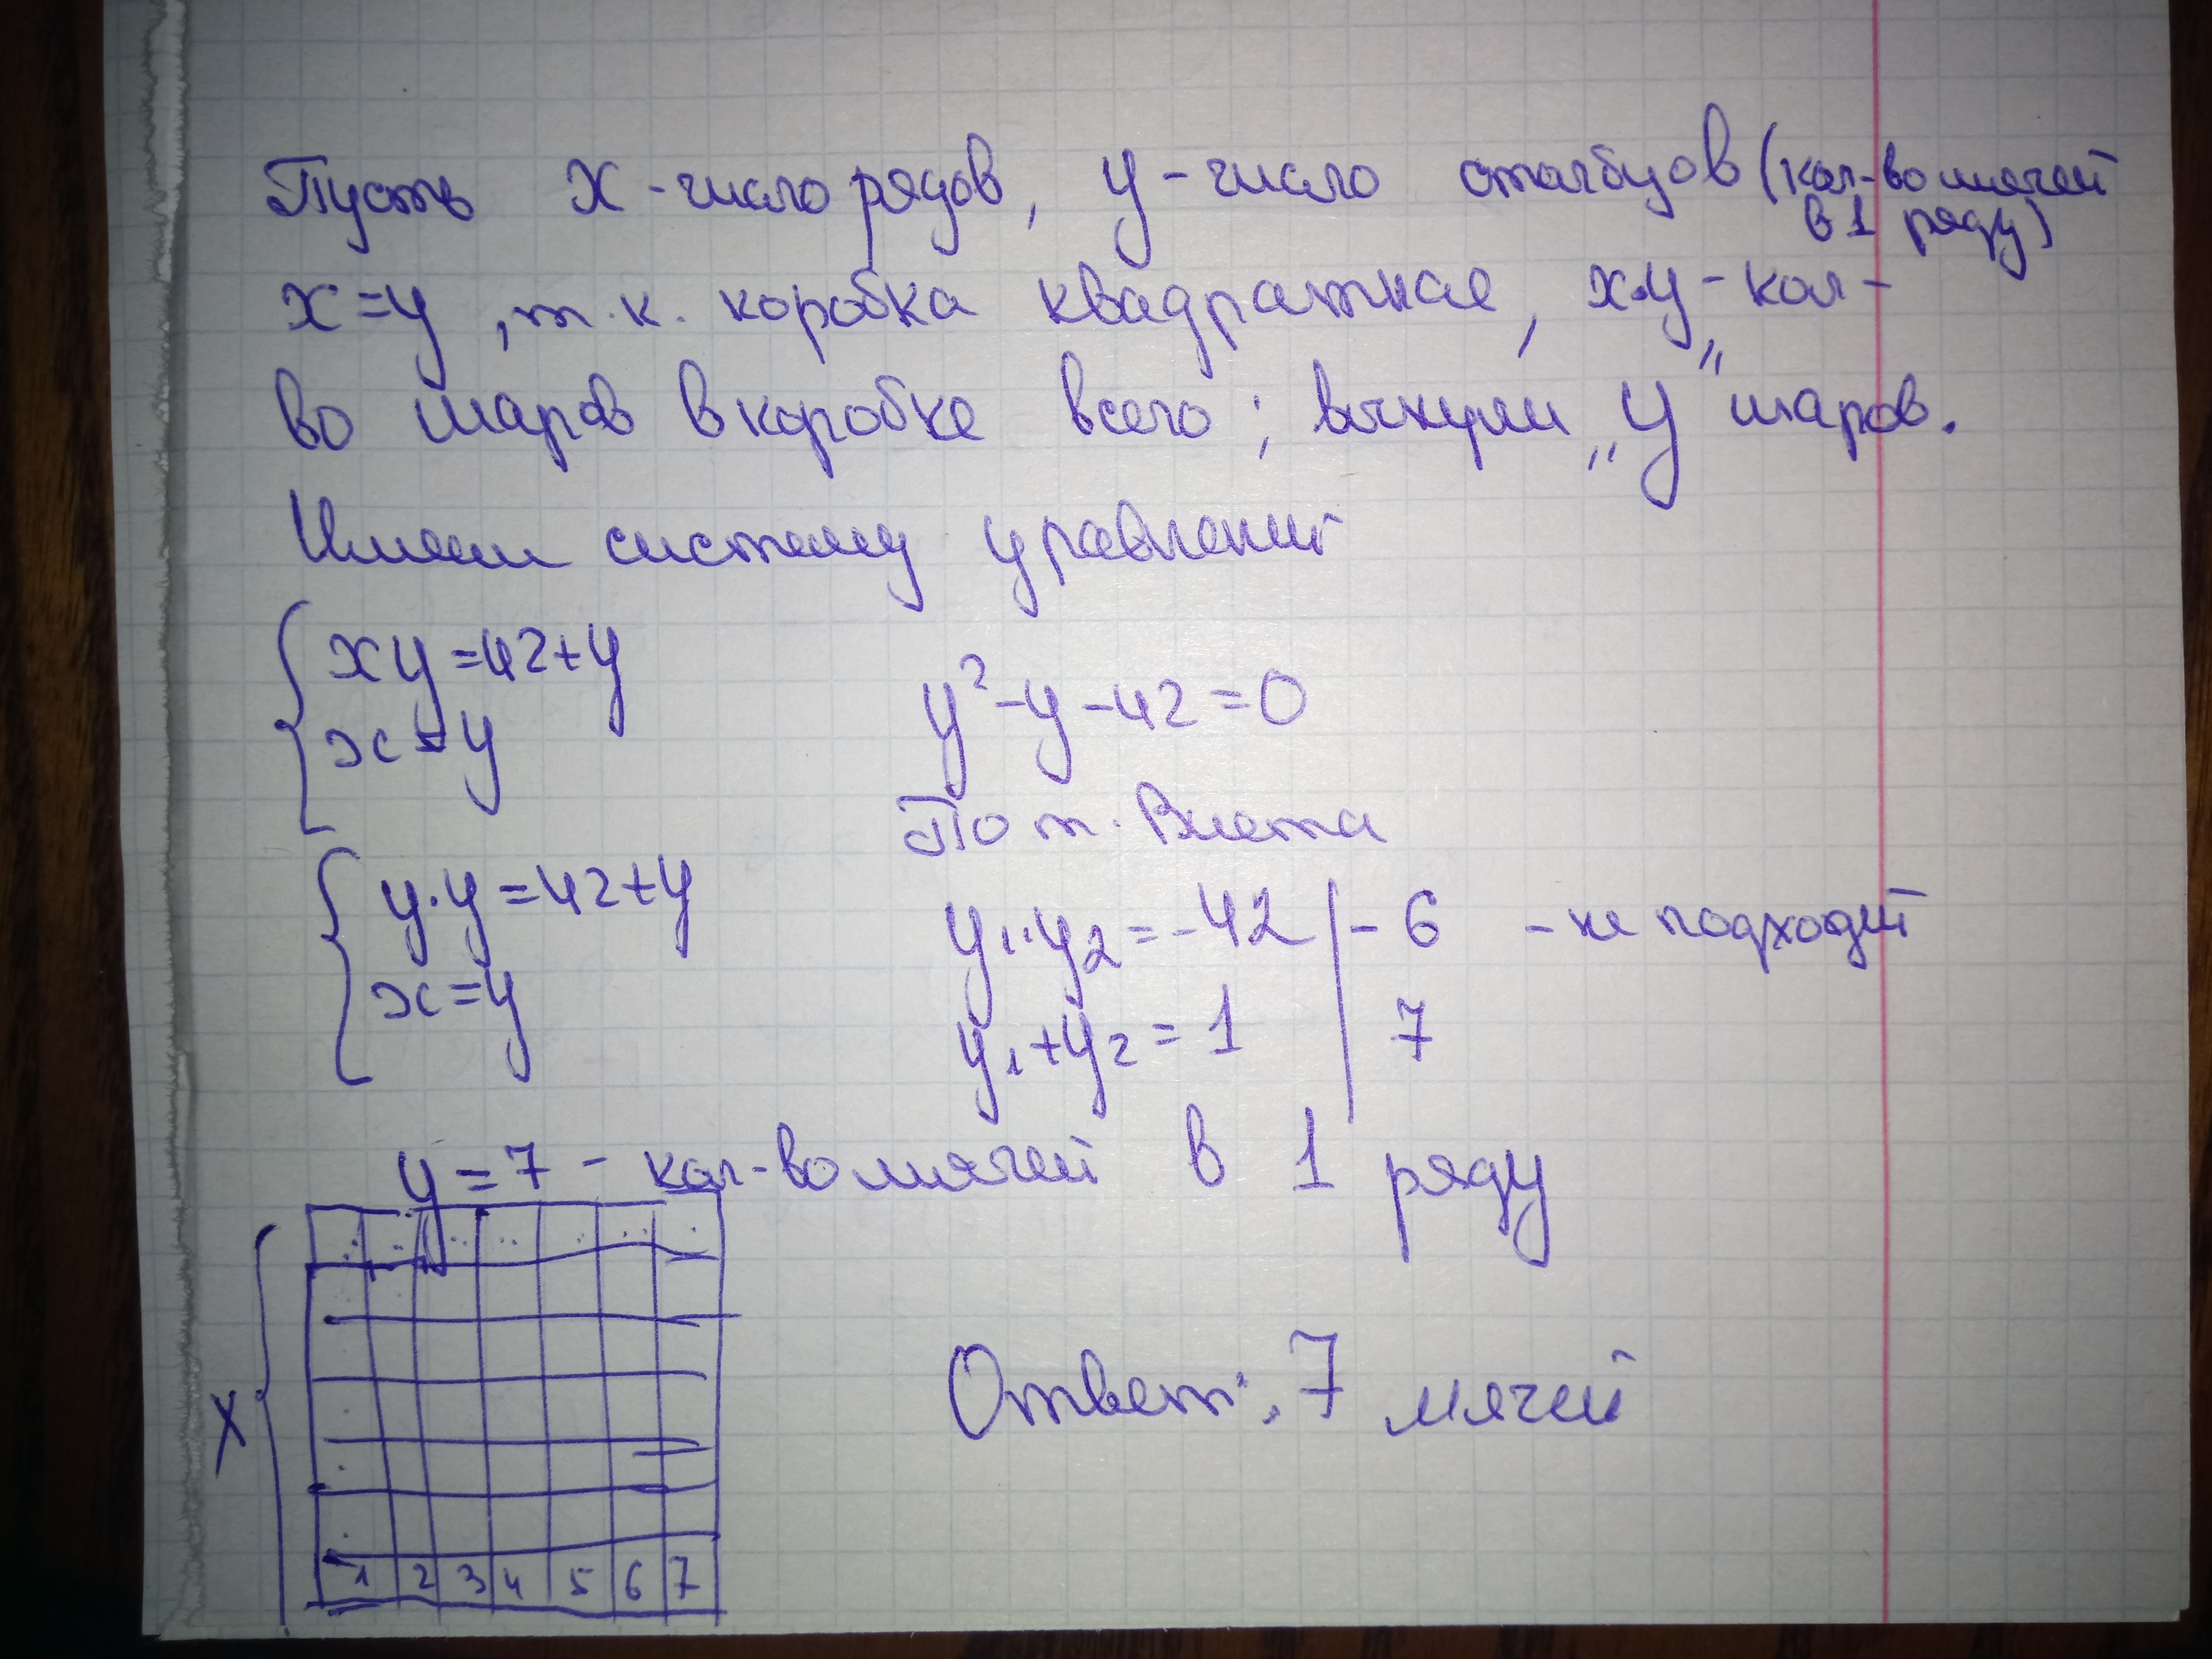 Пусть x - число рядов, y - число столбцов (кол-во мячей
в 1 ряду)
x=y, т.к. коробка квадратная, x·y - кол-
во шаров в коробке всего; вынули „y" шаров.
Имеем систему уравнений
xy=42+y
x=y
y²-y-42=0
По т. Виета
y·y=42+y
x=y
y₁·y₂=-42 | -6 - не подходит
y₁+y₂=1 | 7
y=7 - кол-во мячей в 1 ряду
x
1 2 3 4 5 6 7
Ответ: 7 мячей